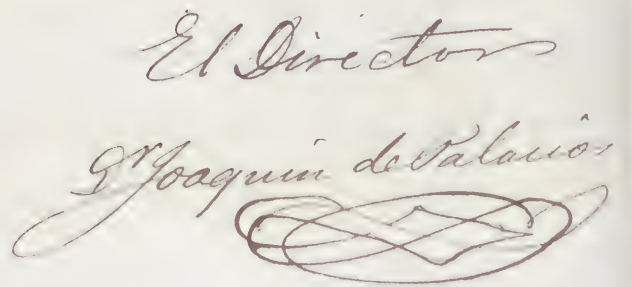 El Director
Dr Joaquin de Palacios